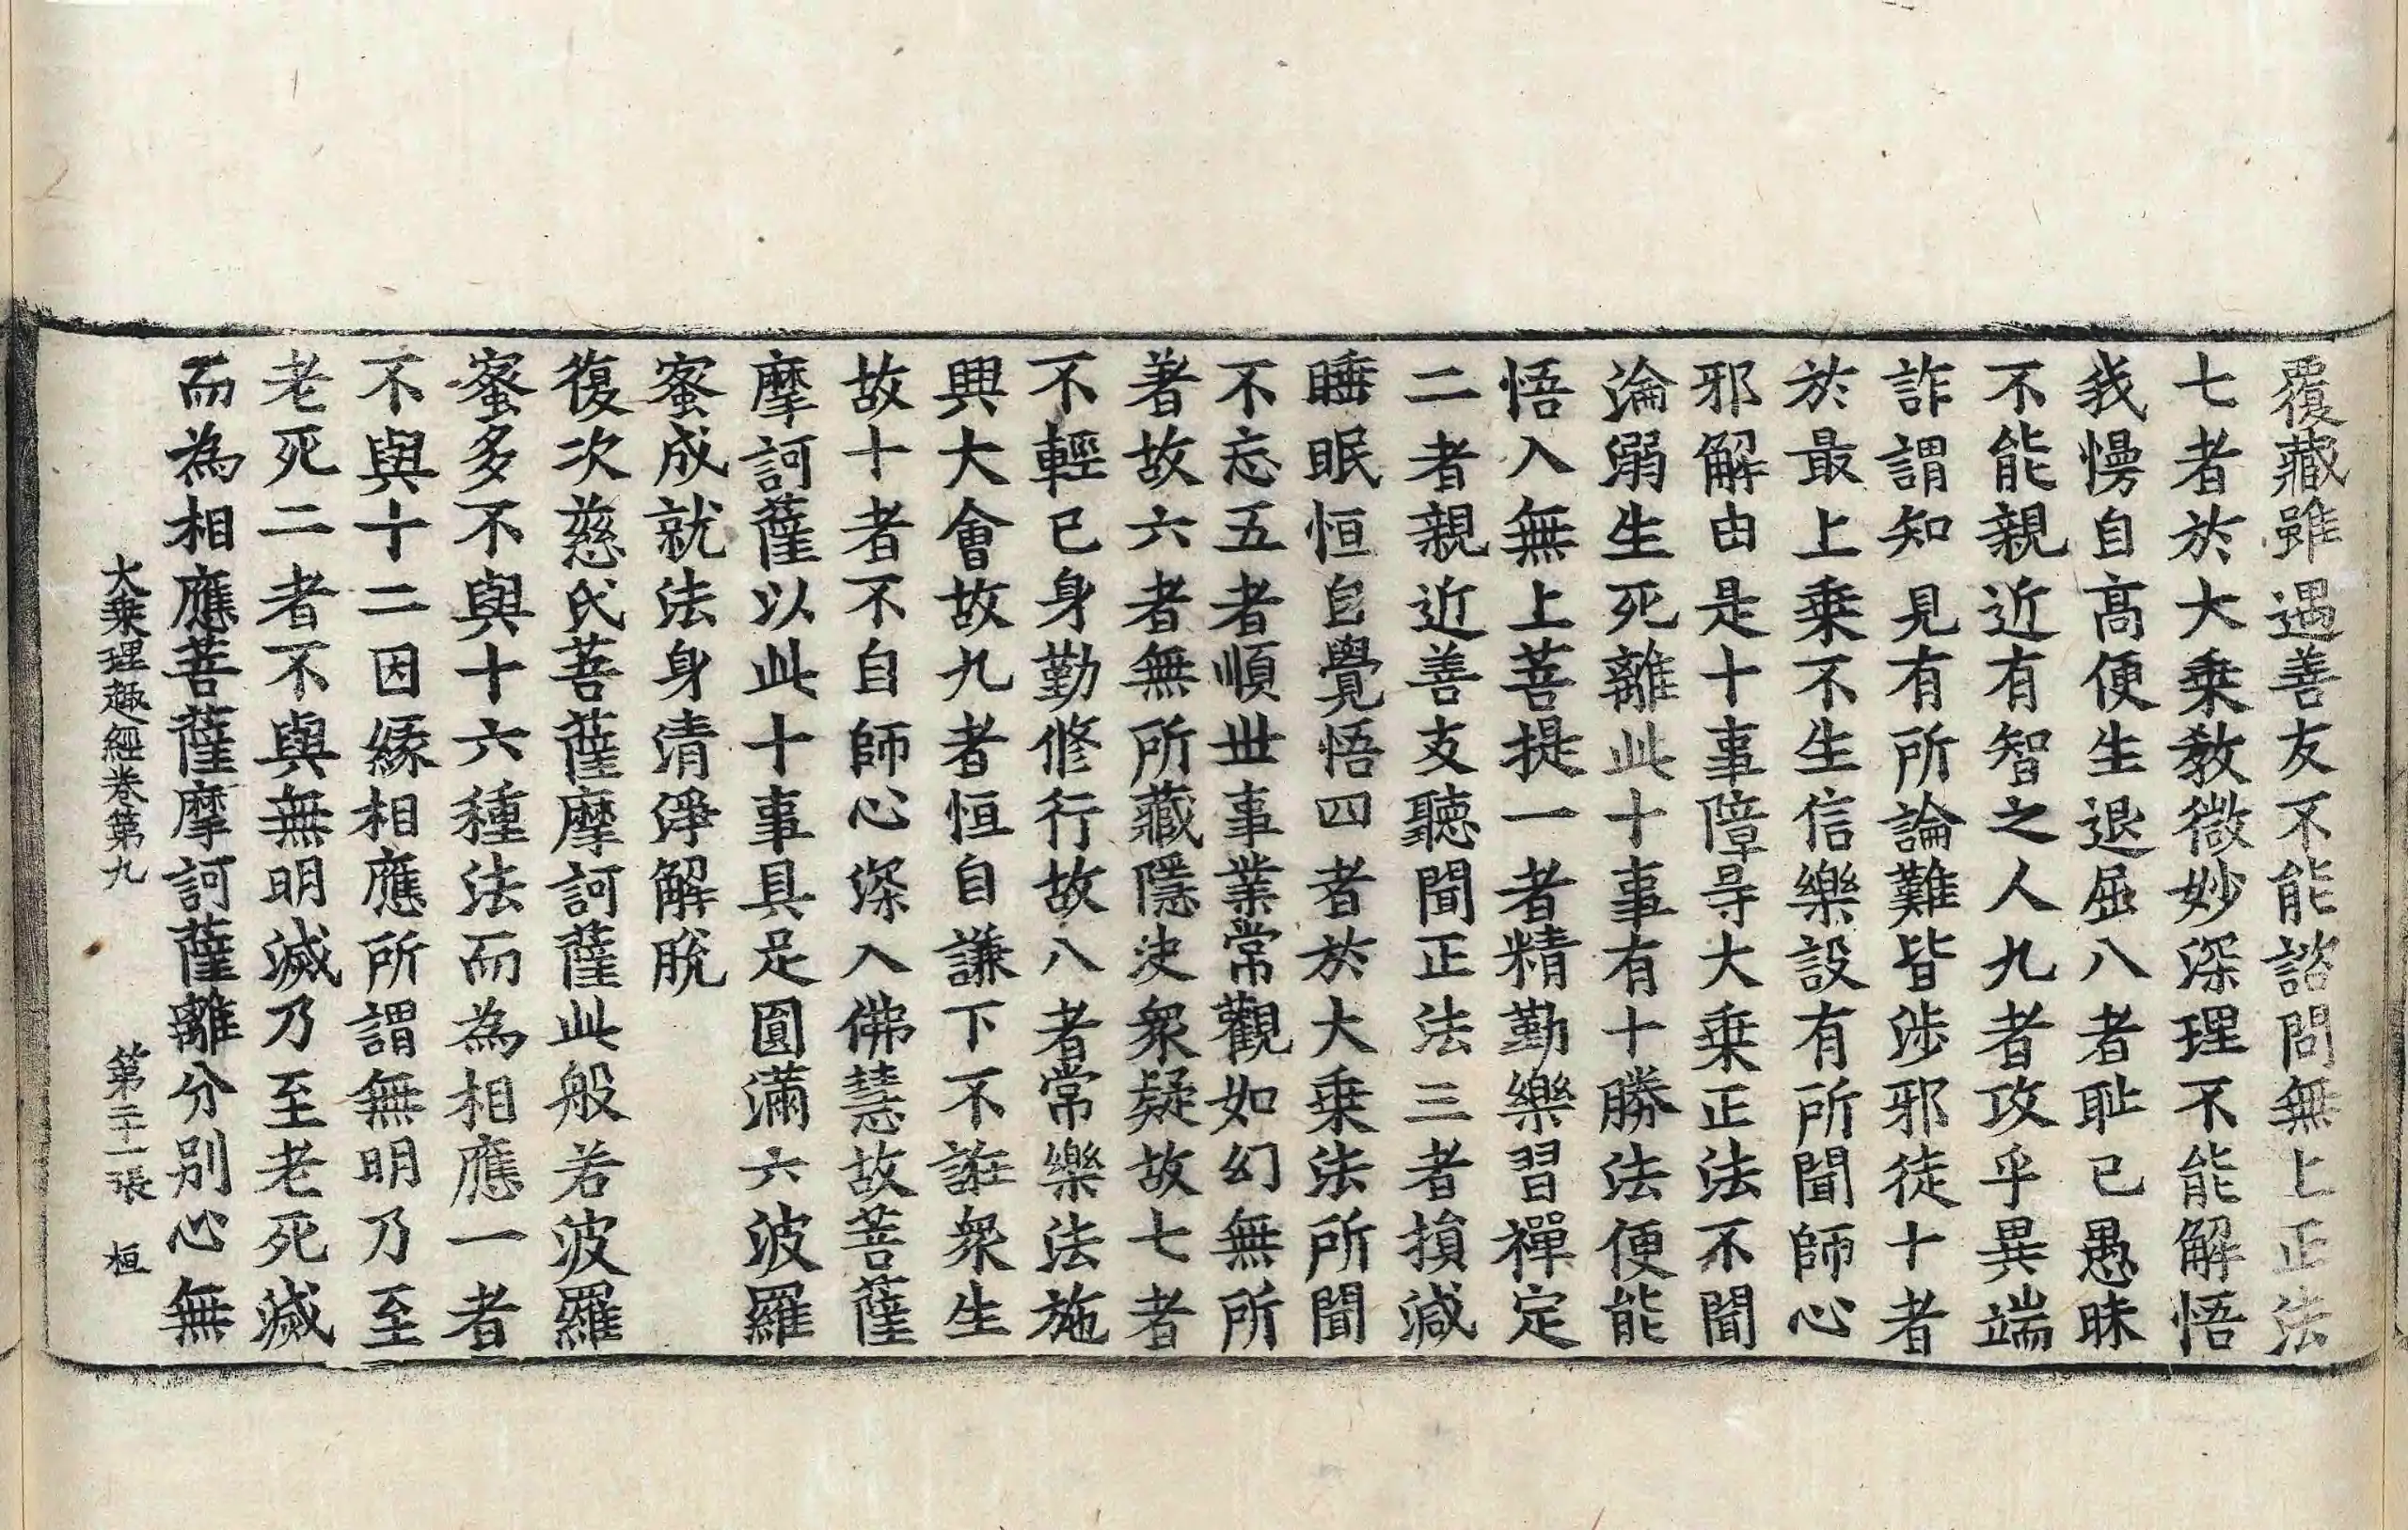 覆藏雖遇善友不能諮問無上正法
七者於大乗教微妙深理不能解悟
我慢自髙便生退屈八者耻已愚昧
不能親近有智之人九者攻乎異端
詐謂知見有所論難皆涉邪徒十者
於最上乗不生信樂設有所聞師心
邪解由是十事障㝵大乗正法不聞
淪溺生死離此十事有十勝法便能
悟入無上菩提一者精勤樂習禪定
二者親近善友聽聞正法三者損減
睡眠恒自覺悟四者於大乗法所聞
不忘五者順世事業常觀如幻無所
著故六者無所藏隱决衆疑故七者
不輕已身勤修行故八者常樂法施
興大會故九者恒自謙下不誑衆生
故十者不自師心深入佛慧故菩薩
摩訶薩以此十事具足圓滿六波羅
蜜成就法身清淨解脫
復次慈氏菩薩摩訶薩此般若波羅
蜜多不與十六種法而為相應一者
不與十二因緣相應所謂無明乃至
老死二者不與無明滅乃至老死滅
而為相應菩薩摩訶薩離分別心無
大乗理趣經卷第九　第二十一張　桓